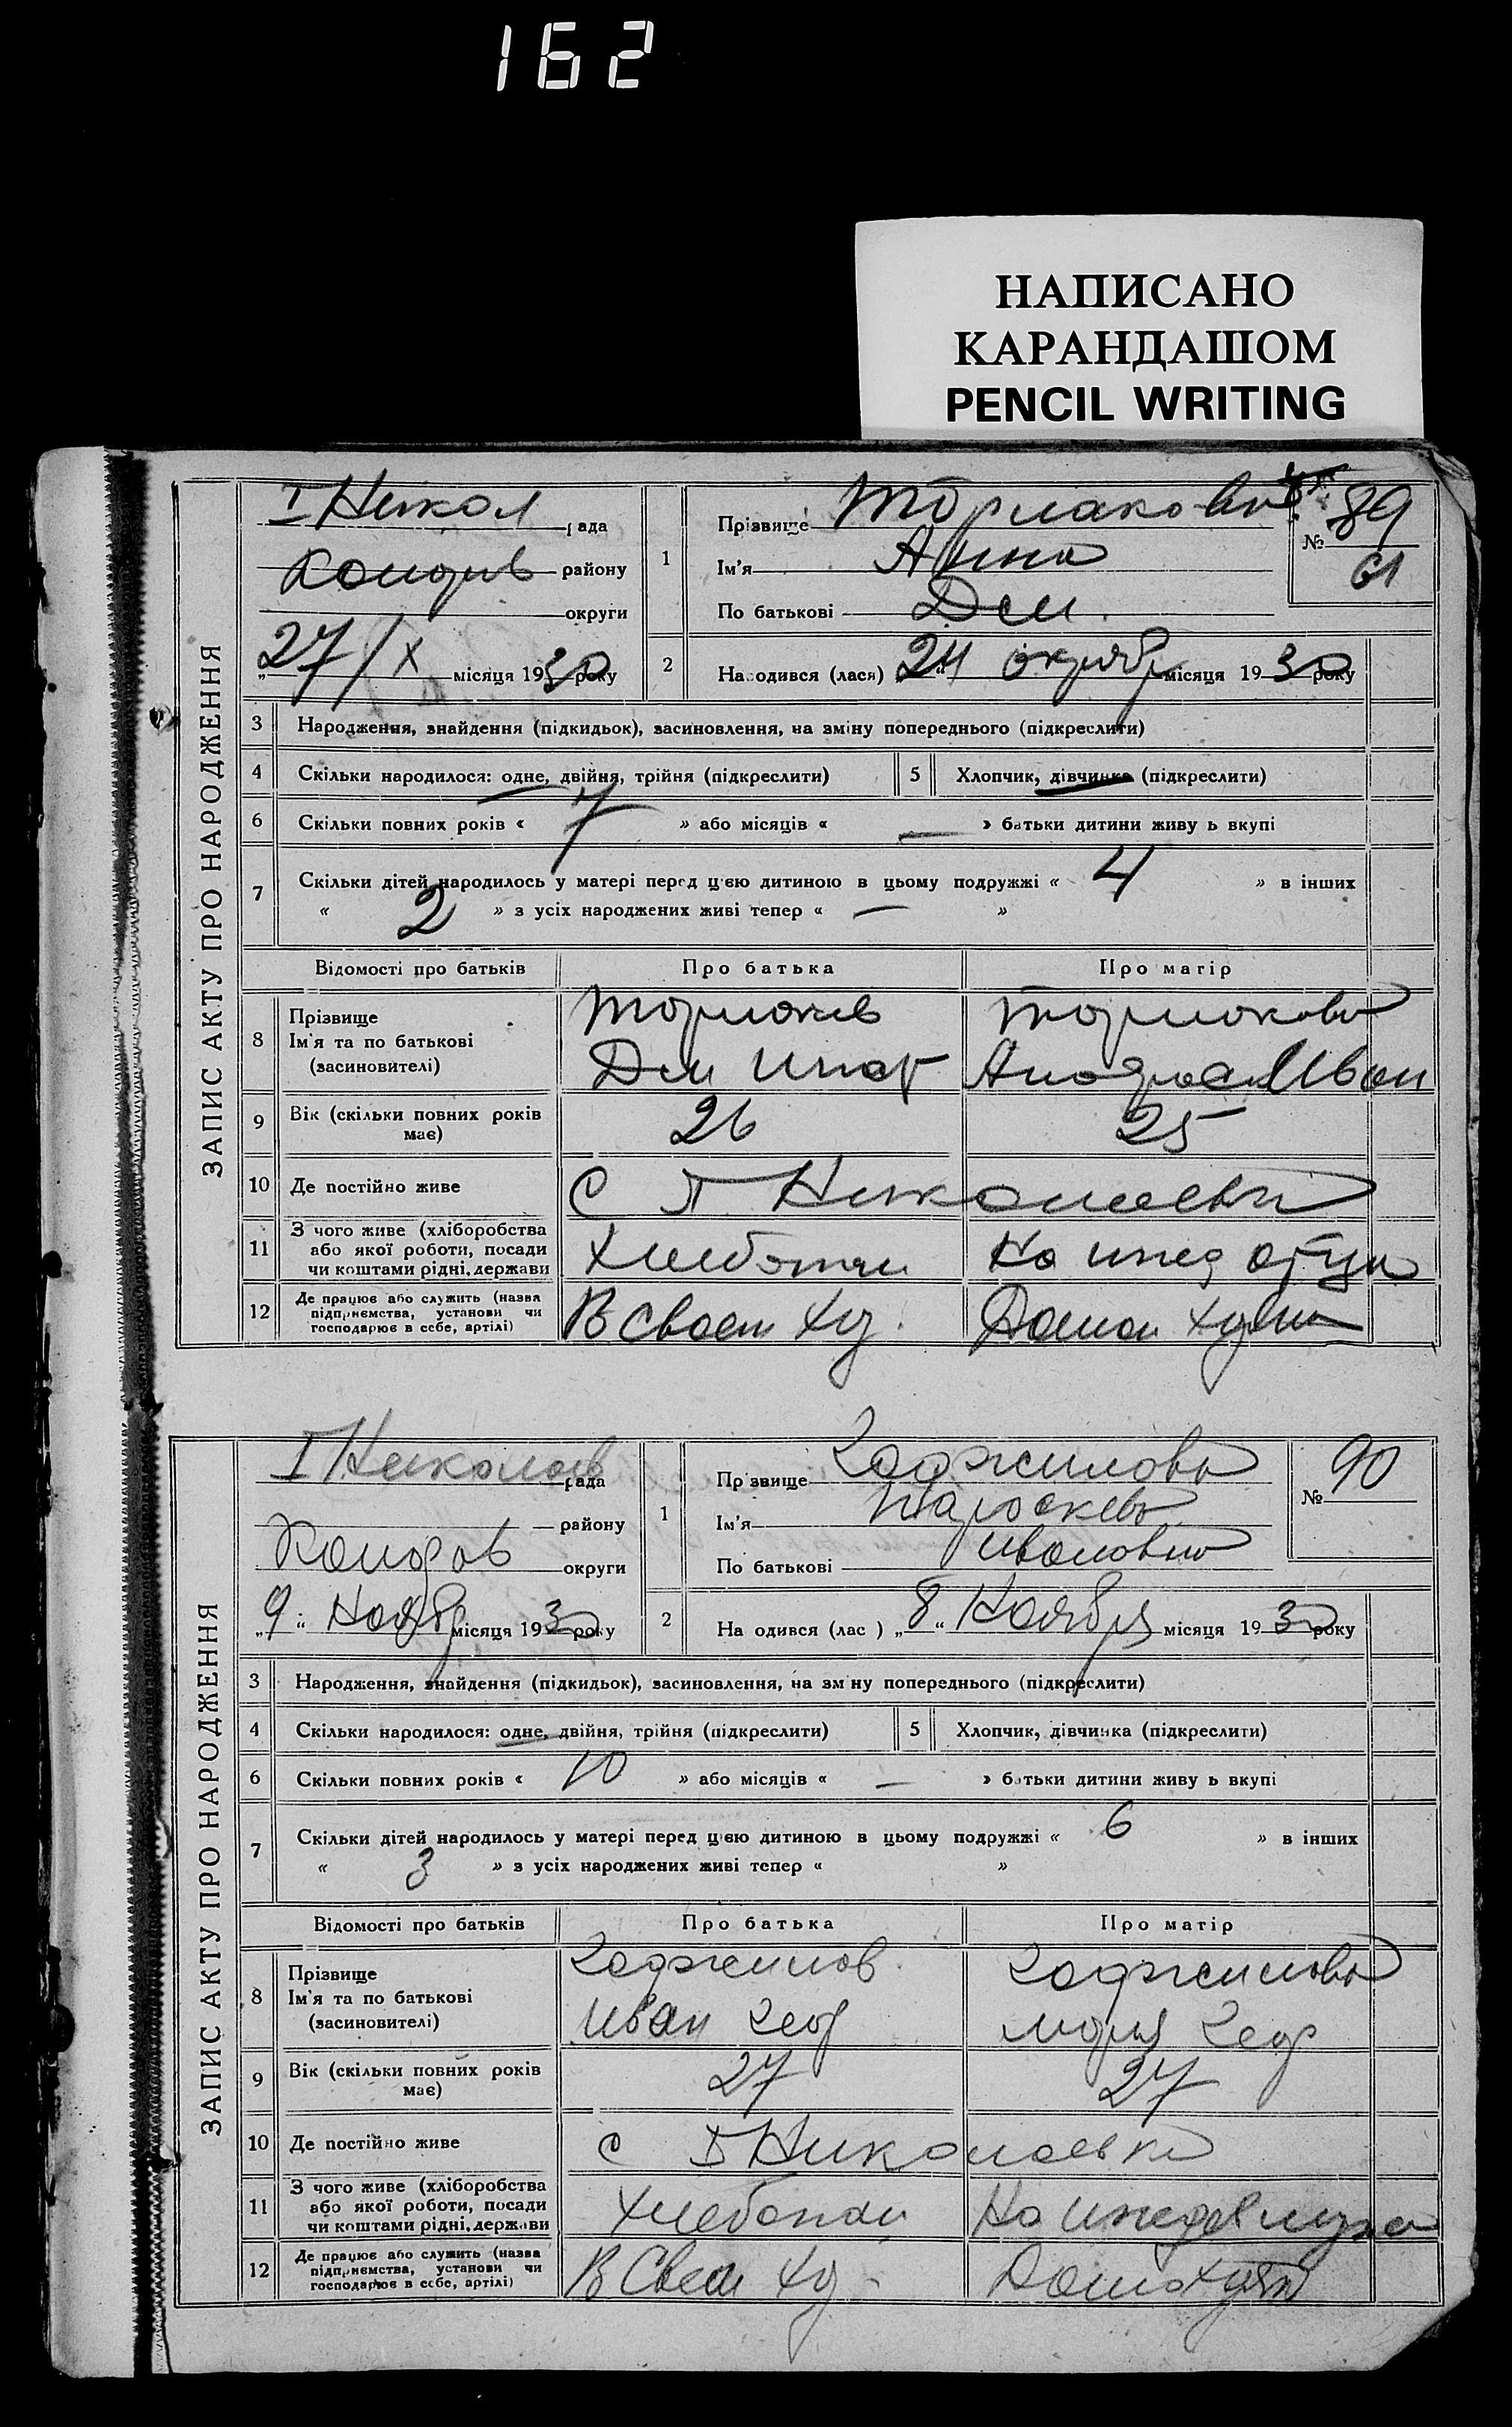 162
НАПИСАНО
КАРАНДАШОМ
PENCIL WRITING
ЗАПИС АКТУ ПРО НАРОДЖЕННЯ
I Никол рада
района району
округи
27/X місяця 1930 року
1
Прізвище
Ім'я Анна
По батькові Дем.
№ 89
61
2
Народився (лася) „24“ октября місяця 1930 року
3 Народження, знайдення (підкидьок), засиновлення, на зміну попереднього (підкреслити)
4 Скільки народилося: одне, двійня, трійня (підкреслити)
5 Хлопчик, дівчинка (підкреслити)
6 Скільки повних років « 7 » або місяців « — » батьки дитини живуть вкупі
7 Скільки дітей народилось у матері перед цією дитиною в цьому подружжі « 4 » в інших
« 2 » з усіх народжених живі тепер « — »
Відомості про батьків Про батька Про матір
8 Прізвище
Ім'я та по батькові
(засновителі)
Дем Игнат Иван
9 Вік (скільки повних років
має) 26 25
10 Де постійно живе С I Николаевки
11 З чого живе (хліборобства
або якої роботи, посади
чи коштами рідні, держави
Хлебопаш На ижд отца
12 Де працює або служить (назва
підприємства, установи чи
господарює в себе, артілі)
В своем хоз. Домаш
ЗАПИС АКТУ ПРО НАРОДЖЕННЯ
I Николаев рада
району
округи
„9“ Ноября місяця 1930 року
1
Прізвище Хаджинова
Ім'я Параскева
По батькові Ивановна
№ 90
2
Народився (лася) „8“ Ноября місяця 1930 року
3 Народження, знайдення (підкидьок), засиновлення, на зміну попереднього (підкреслити)
4 Скільки народилося: одне, двійня, трійня (підкреслити)
5 Хлопчик, дівчинка (підкреслити)
6 Скільки повних років « 10 » або місяців « — » батьки дитини живуть вкупі
7 Скільки дітей народилось у матері перед цією дитиною в цьому подружжі « 6 » в інших
« 3 » з усіх народжених живі тепер « »
Відомості про батьків Про батька Про матір
8 Прізвище
Ім'я та по батькові
(засиновителі)
Хаджинов Хаджинова
Иван Мария
9 Вік (скільки повних років
має) 27 27
10 Де постійно живе с I Николаевка
11 З чого живе (хліборобства
або якої роботи, посади
чи коштами рідні, держави
Хлебопаш На иждев мужа
12 Де працює або служить (назва
підприємства, установи чи
господарює в себе, артілі)
В Своем хоз.